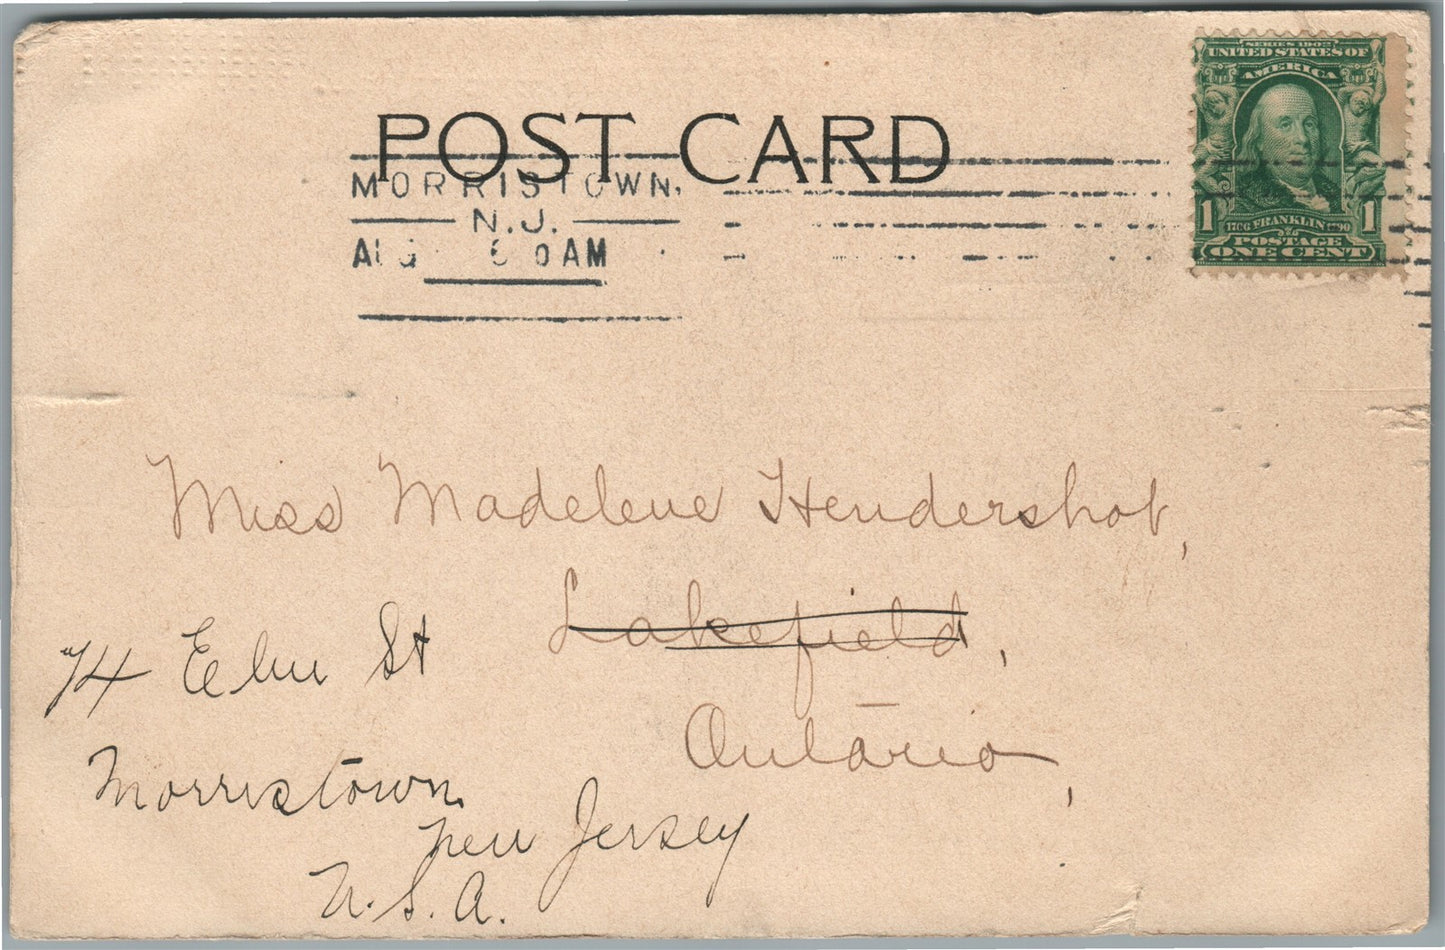 POST CARD
MORRISTOWN,
N.J.
AUG 0 AM
SERIES 1902
UNITED STATES OF
AMERICA
1 FRANKLIN 1
1706 1790
POSTAGE
ONE CENT
Miss Madelene Hendershot,
Lakefield,
Ontario,
74 Elm St
Morristown
New Jersey
U.S.A.